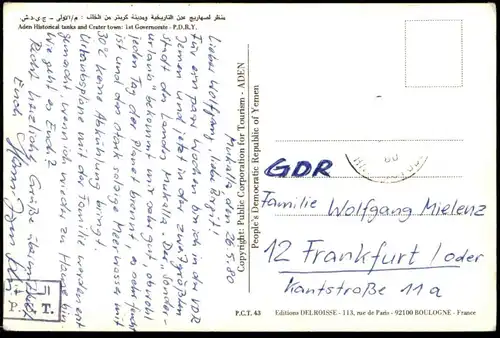 منظر لصهاريج عدن التاريخية ومدينة كريتر من الخلف : م/الاولى - ج.ي.د.ش
Aden Historical tanks and Crater town: 1st Governorate - P.D.R.Y.
Mukalla, den 26.5.80
Lieber Wolfgang, liebe Birgit!
Für ein paar Wochen bin ich in der VDR
Jemen und jetzt in der zweitgrößten
Stadt des Landes Mukalla. Der "Sonder-
urlaub" bekommt mir sehr gut obwohl
jeden Tag der Planet brennt, es sehr feucht
ist und das stark salzige Meerwasser mit
30°C keine Abkühlung bringt.
Urlaubspläne mit der Familie werden erst
gemacht wenn ich wieder zu Hause bin.
Wie geht es Euch?
Recht herzliche Grüße übermittelt
Euch
Copyright: Public Corporation for Tourism - ADEN
People's Democratic Republic of Yemen
GDR
Familie Wolfgang Mielenz
12 Frankfurt / Oder
Kantstraße 11a
T.
P.C.T. 43 Editions DELROISSE - 113, rue de Paris - 92100 BOULOGNE - France